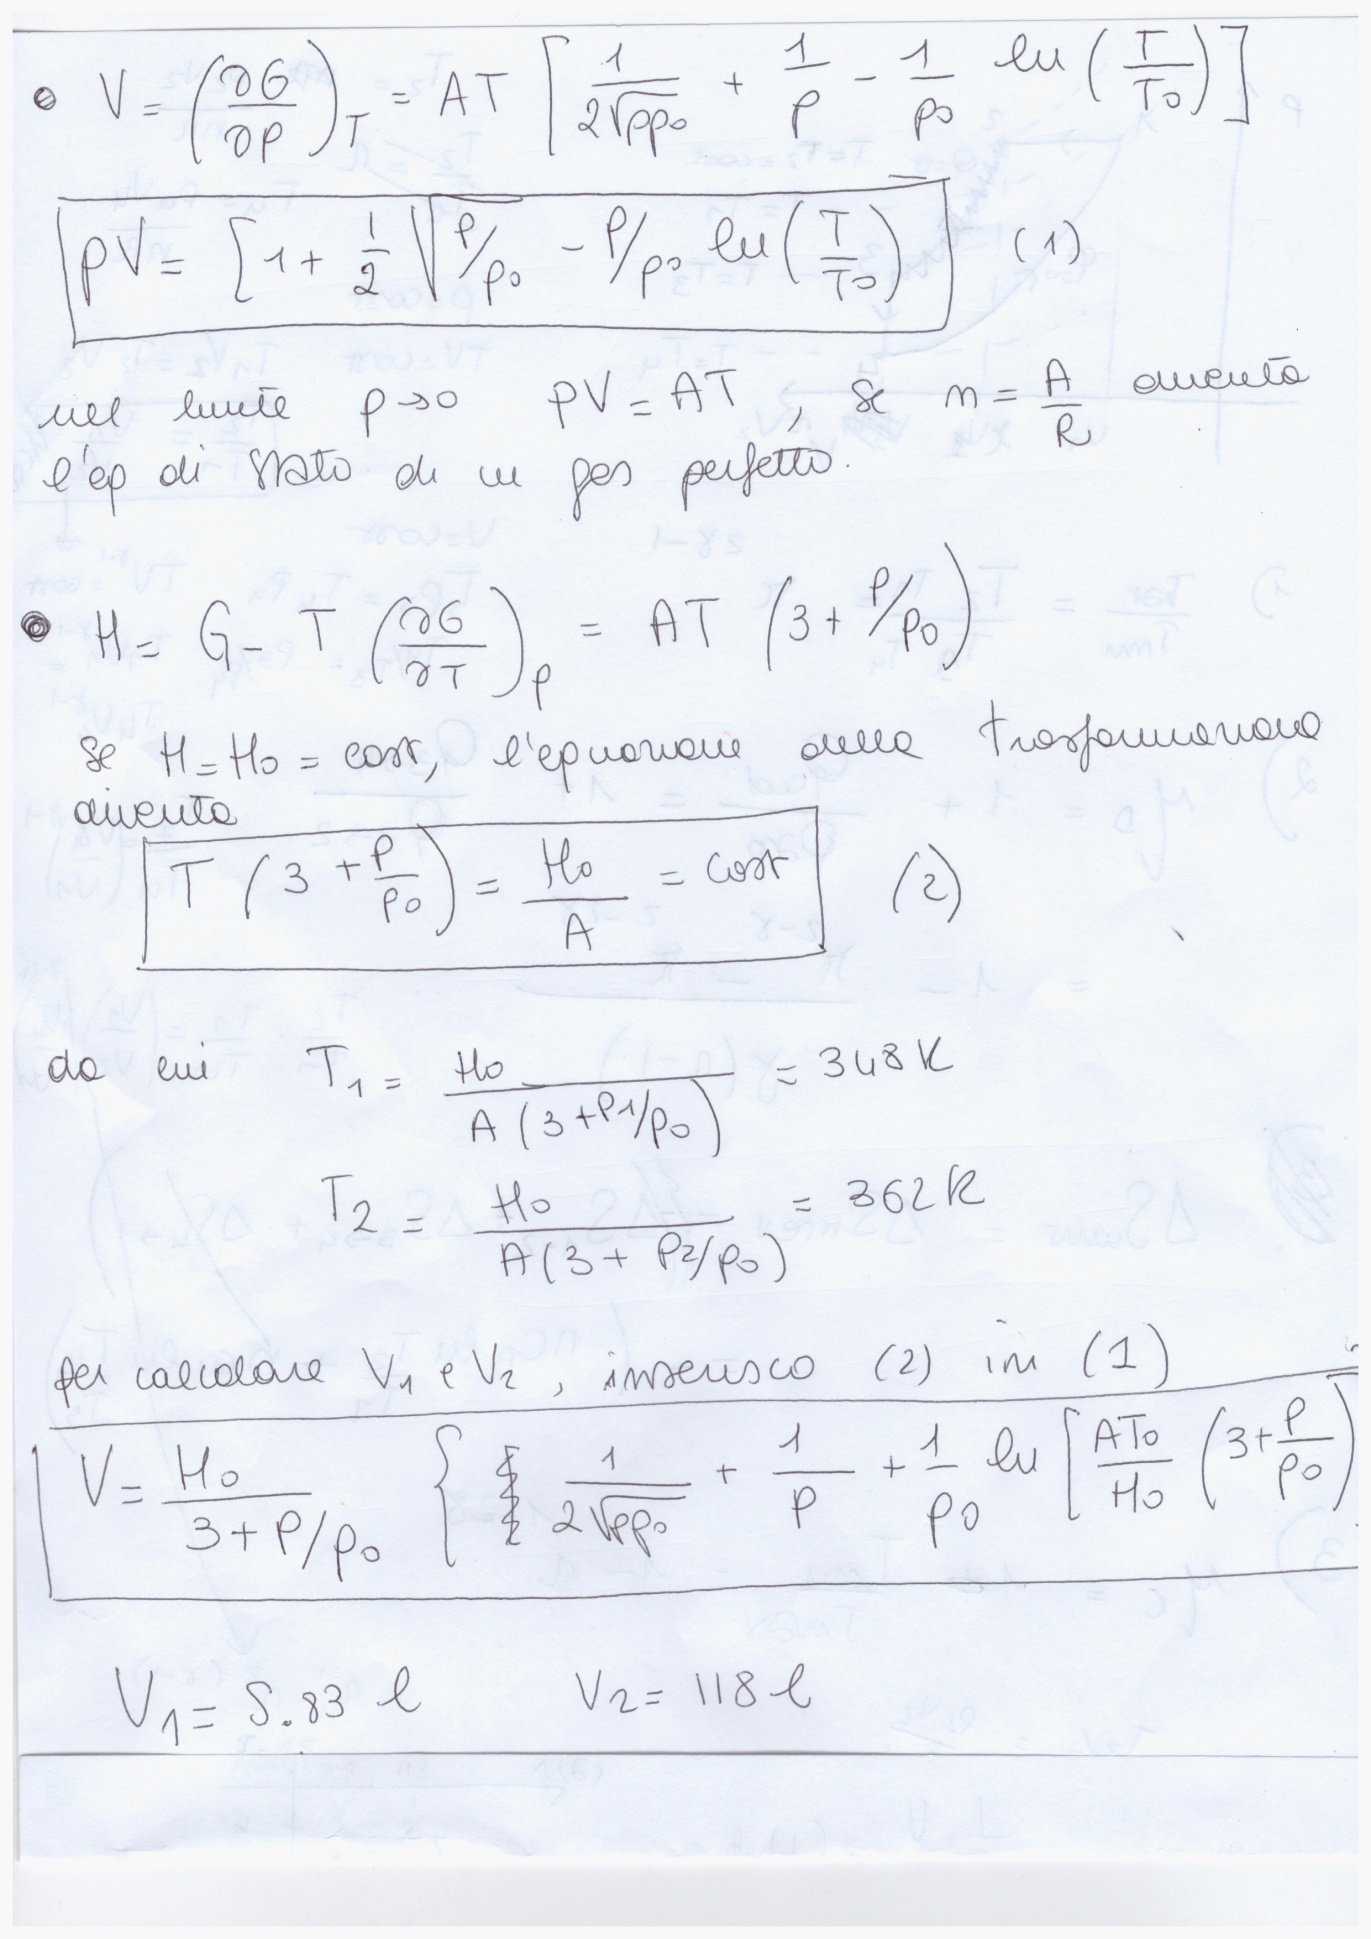 • V = (∂G/∂P)_T = AT [ 1/(2√(pp₀)) + 1/p − 1/p₀ ln(T/T₀) ]
pV = [ 1 + 1/2 √(P/p₀) − P/p₀ ln(T/T₀)   (1)
nel limite p→0   PV = AT , se n = A/R diventa
l'eq di stato di un gas perfetto.
• H = G − T (∂G/∂T)_p = AT (3 + P/p₀)
se H = H₀ = cost, l'equazione della trasformazione
diventa
T (3 + P/p₀) = H₀/A = cost   (2)
da cui   T₁ = H₀/(A(3 + P1/p₀)) = 348 K
T₂ = H₀/(A(3 + P2/p₀)) = 362 K
per calcolare V₁ e V₂ , inserisco (2) in (1)
V = H₀/(3 + P/p₀) { 1/(2√(pp₀)) + 1/p + 1/p₀ ln [ AT₀/H₀ (3 + P/p₀)
V₁ = 5.83 l   V₂ = 118 l